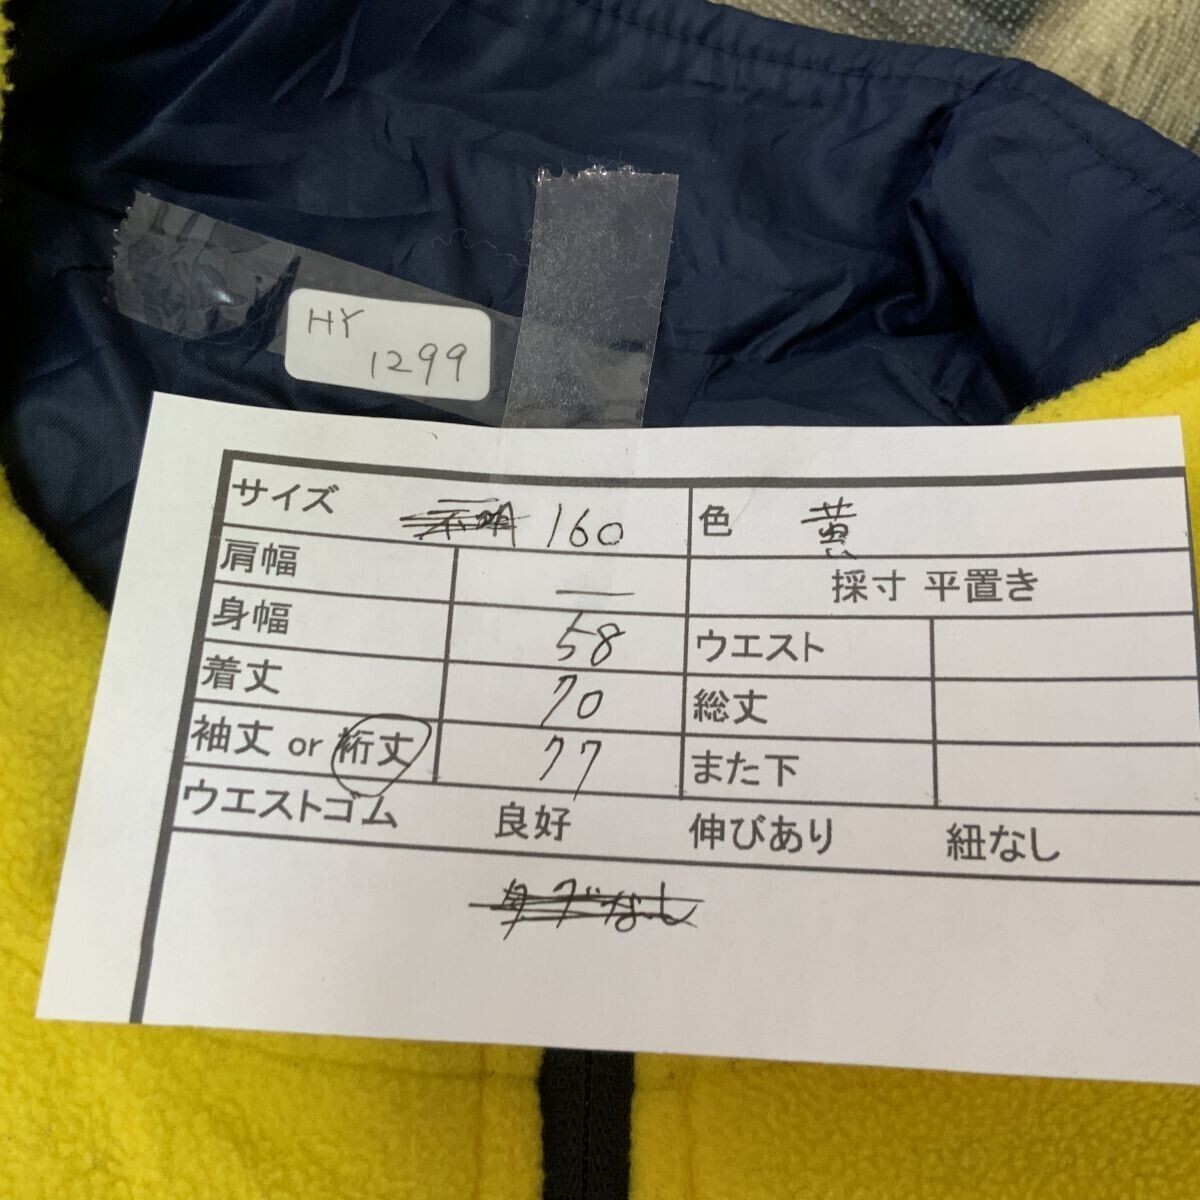 HY
1299
サイズ 不明 160 色 黄
肩幅 — 採寸 平置き
身幅 58 ウエスト
着丈 70 総丈
袖丈 or 裄丈 77 また下
ウエストゴム 良好 伸びあり 紐なし
タグなし